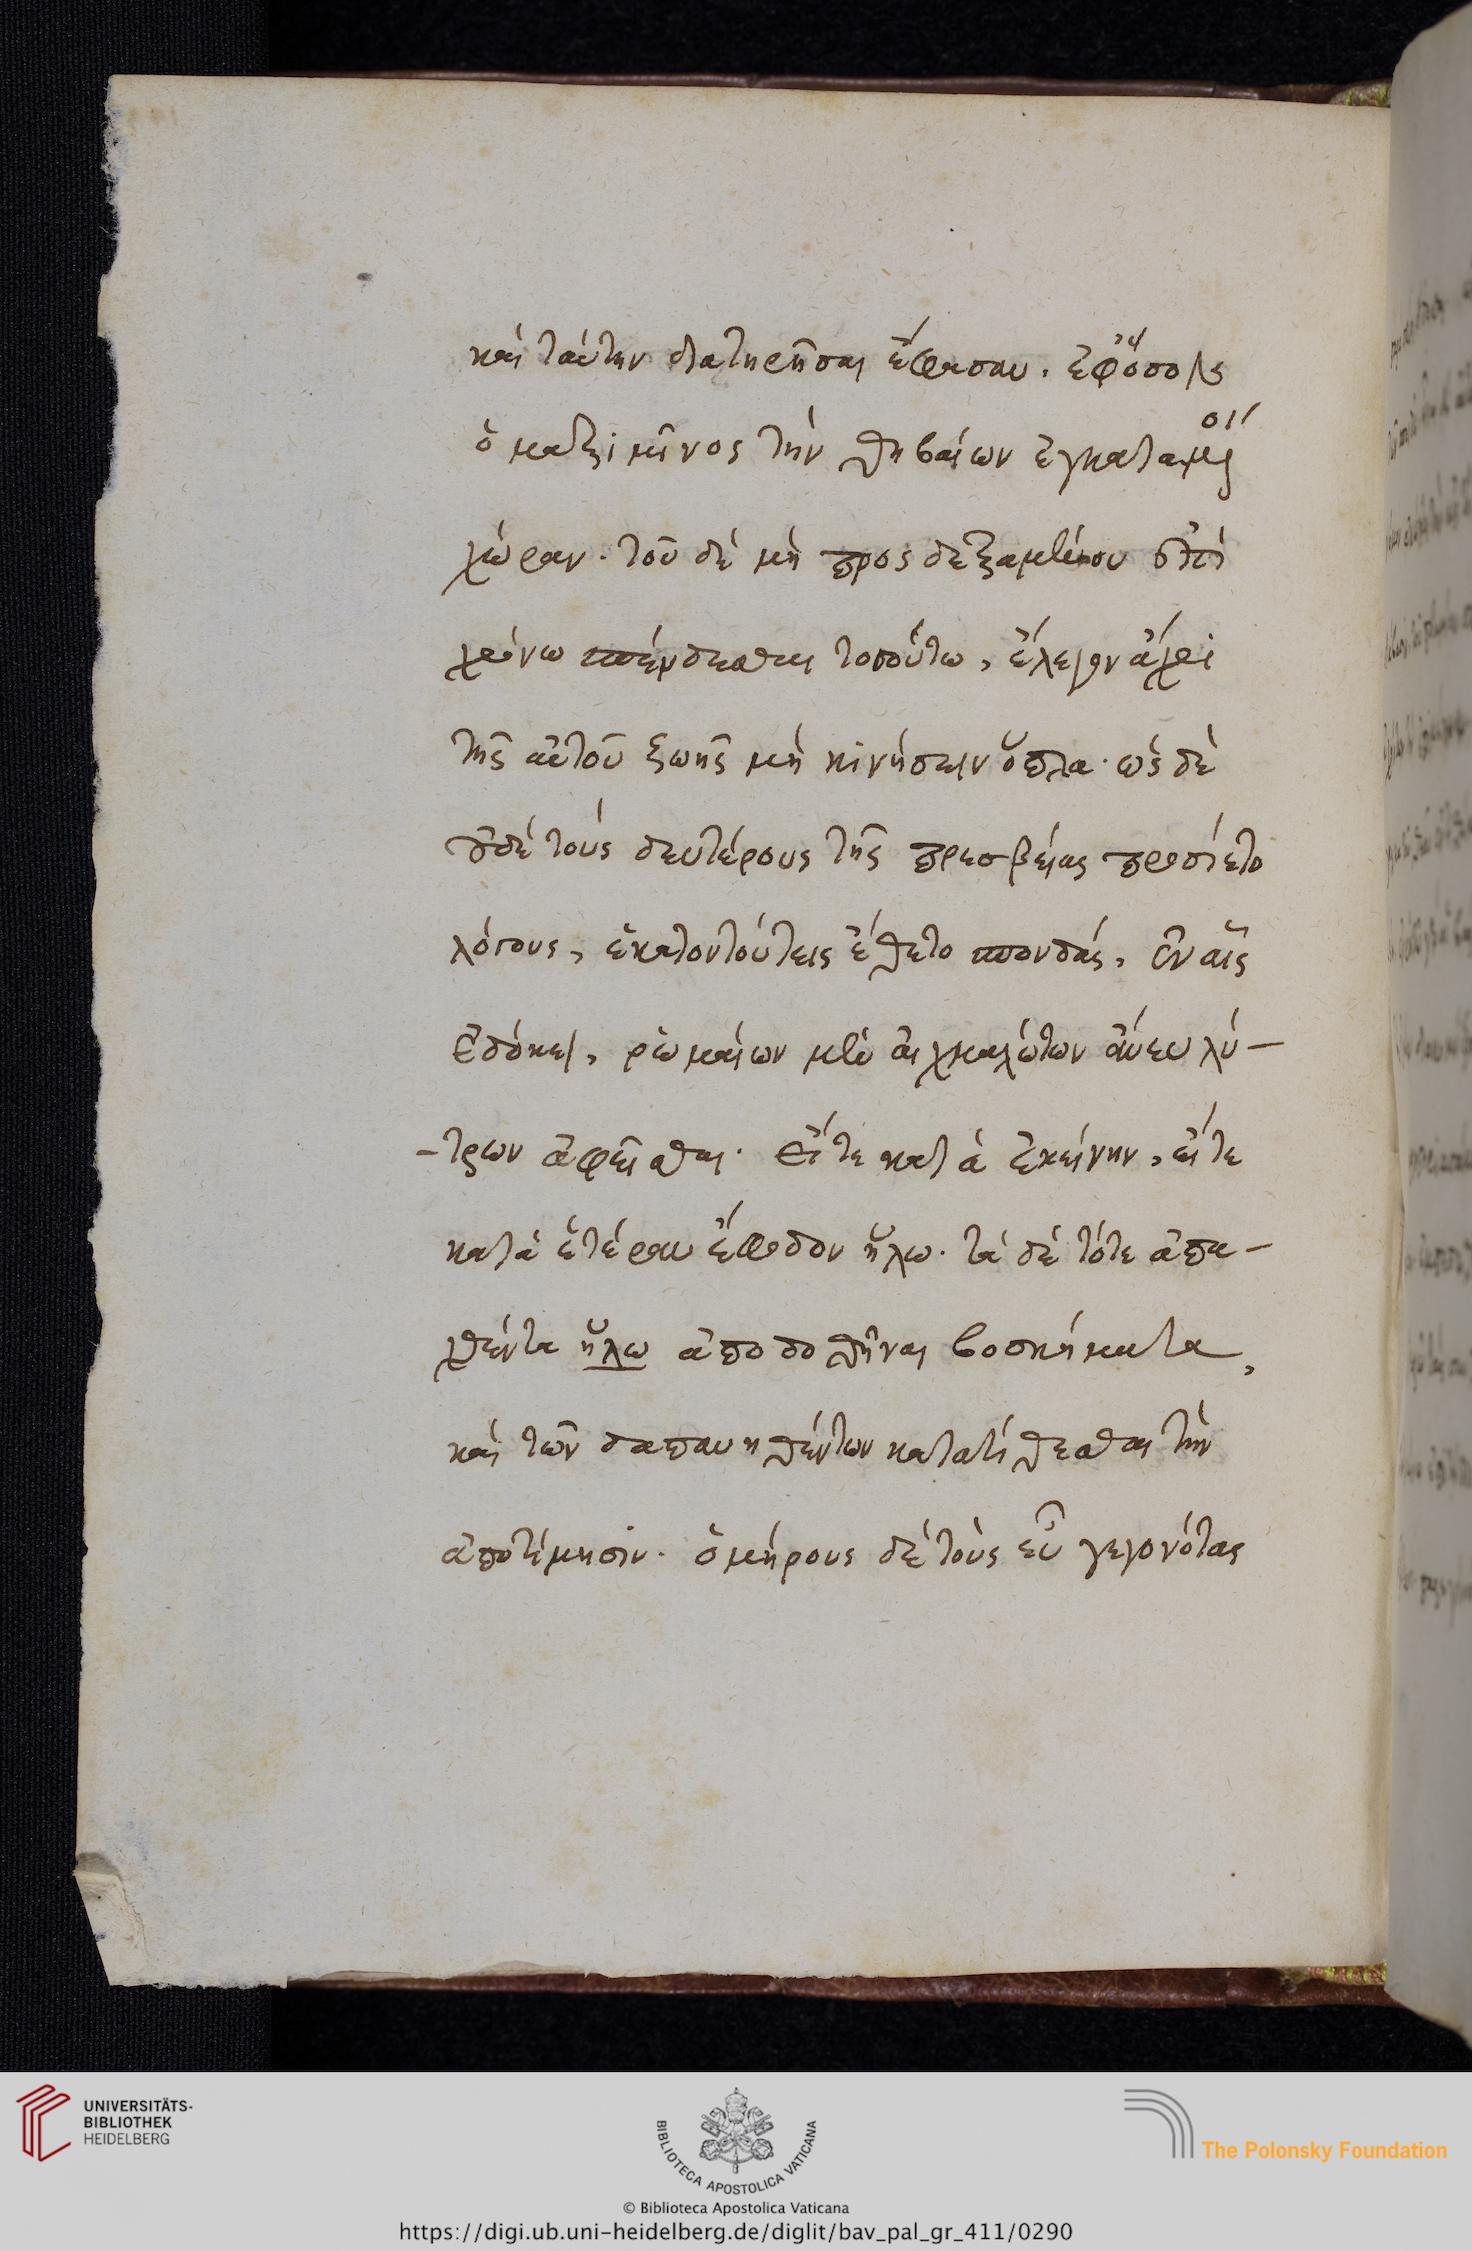 καὶ ταύτην διατηρῆσαι ἔφασαν. ἐφ' ὁπόσον
ὁ μαξιμῖνος τὴν θηβαίων ἐγκαταμένοι
χώραν. τοῦ δὲ μὴ προσδεξαμένου ἐπὶ
χρόνω σπένδεσθαι τοσούτω, ἔλεγον ἄχρι
τῆς αὐτοῦ ζωῆς μὴ κινήσειν ὅπλα. ὡς δὲ
οὐδὲ τοὺς δευτέρους τῆς πρεσβείας προσίετο
λόγους, ἑκατοντούτεις ἔθετο σπονδάς, ἐν αἷς
ἐδόκει, ῥωμαίων μὲν αἰχμαλώτων ἄνευ λύ-
-τρων ἀφεῖσθαι. εἴτε κατὰ ἐκείνην, εἴτε
κατὰ ἑτέραν ἔφοδον ἥλω. τὰ δὲ τότε ἀπα-
χθέντα ἥλω ἀποδοθῆναι βοσκήματα,
καὶ τῶν δαπανηθέντων κατατίθεσθαι τὴν
ἀποτίμησιν. ὁμήρους δὲ τοὺς εὖ γεγονότας
UNIVERSITÄTS-
BIBLIOTHEK
HEIDELBERG
BIBLIOTECA APOSTOLICA VATICANA
The Polonsky Foundation
© Biblioteca Apostolica Vaticana
https://digi.ub.uni-heidelberg.de/diglit/bav_pal_gr_411/0290